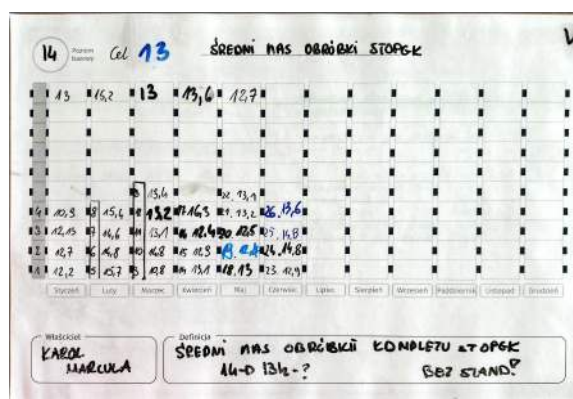 14 Poziom bazowy Cel 13 ŚREDNI MAS OBRÓBKI STOPEK
13 15,2 13 13,6 12,7
13,4 22. 13,1
4 10,9 8 15,4 13,2 17 16,3 21. 13,2 26. 13,6
3 12,15 7 14,6 11 13,1 16 12.4 20. 12,5 25. 14,8
2 12,7 6 14,8 10 16,8 15 12,3 24. 14,8
1 12,2 5 15,7 9 10,8 14 13,1 18. 13 23. 12,9
Styczeń Luty Marzec Kwiecień Maj Czerwiec Lipiec Sierpień Wrzesień Październik Listopad Grudzień
Właściciel Definicja
KAROL ŚREDNI MAS OBRÓBKI KOMPLETU STOPEK
MARCULA 14-D 13h-? BEZ STAND!